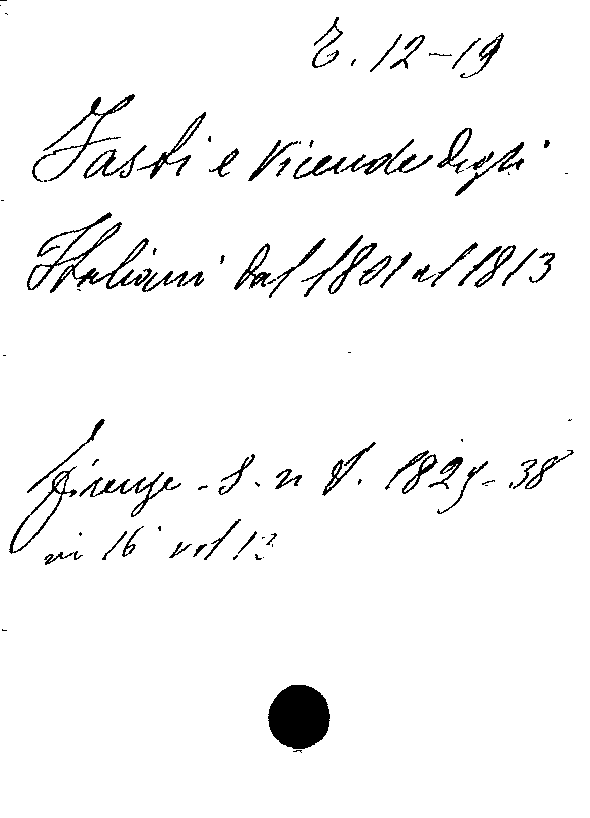 E. 12-19
Fasti e Vicende degli
Italiani dal 1801 al 1813
Firenze - S. n t. 1829-38
in 16° vol 13